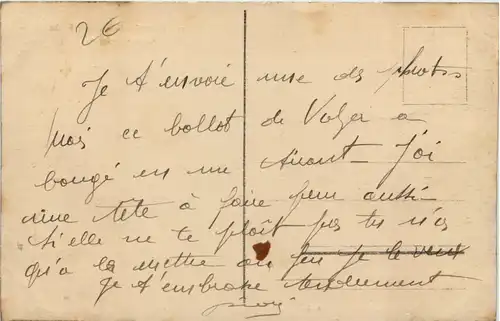 26
Je t'envoie une des photos
Mais ce ballot de Valza a
bougé en me tirant J'ai
une tête à faire peur aussi
si elle ne te plaît pas tu n'as
qu'a la mettre au feu je le veux
Je t'embrasse tendrement